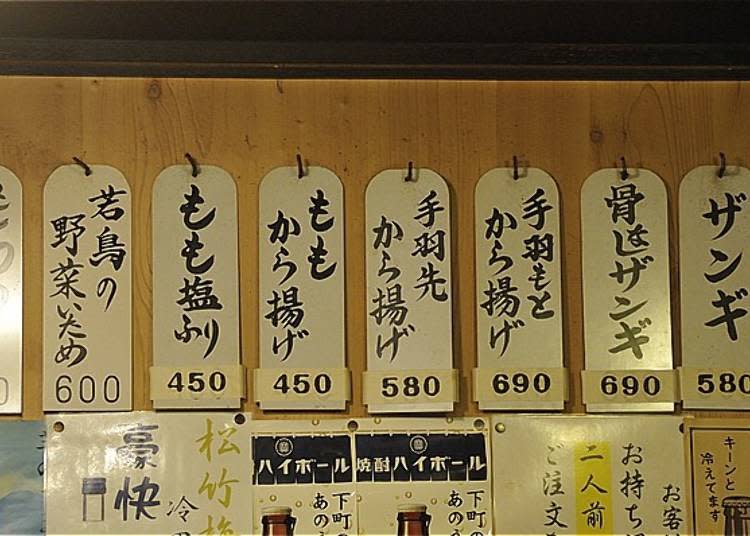 ザンギ
580
骨なしザンギ
690
手羽もと
から揚げ
690
手羽先
から揚げ
580
もも
から揚げ
450
もも塩ふり
450
若鳥の
野菜いため
600
キーンと
冷えてます
お客
お持ち
二人前
ご注文
焼酎ハイボール
下町の
ハイボール
下町の
松竹梅
豪快
冷